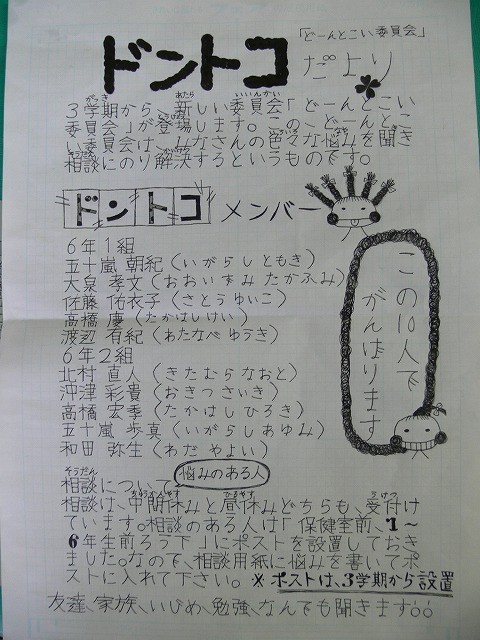 「どーんとこい委員会」
ドントコ だより
3学期から、新しい委員会「どーんとこい
委員会」が登場します。この、どーんとこ
い委員会は、みなさんの色々な悩みを聞き
相談にのり解決するというものです。
ドントコ メンバー
6年1組
五十嵐 朝紀(いがらしともき)
大泉 孝文(おおいずみ たかふみ)
佐藤 佑衣子(さとうゆいこ)
高橋 慶(たかはしけい)
渡辺 有紀(わたなべ ゆうき)
6年2組
北村 直人(きたむらなおと)
沖津 彩貴(おきつさいき)
高橋 宏季(たかはしひろき)
五十嵐 歩真(いがらしあゆみ)
和田 弥生(わだ やよい)
この10人で
がんばります
相談について 悩みのある人
相談は、中間休みと昼休みどちらも、受付け
ています。相談のある人は「保健室前、1〜
6年生前ろう下」にポストを設置しておき
ました。なので、相談用紙に悩みを書いてポ
ストに入れて下さい。※ポストは、3学期から設置
友達、家族、いじめ、勉強、なんでも聞きます。。